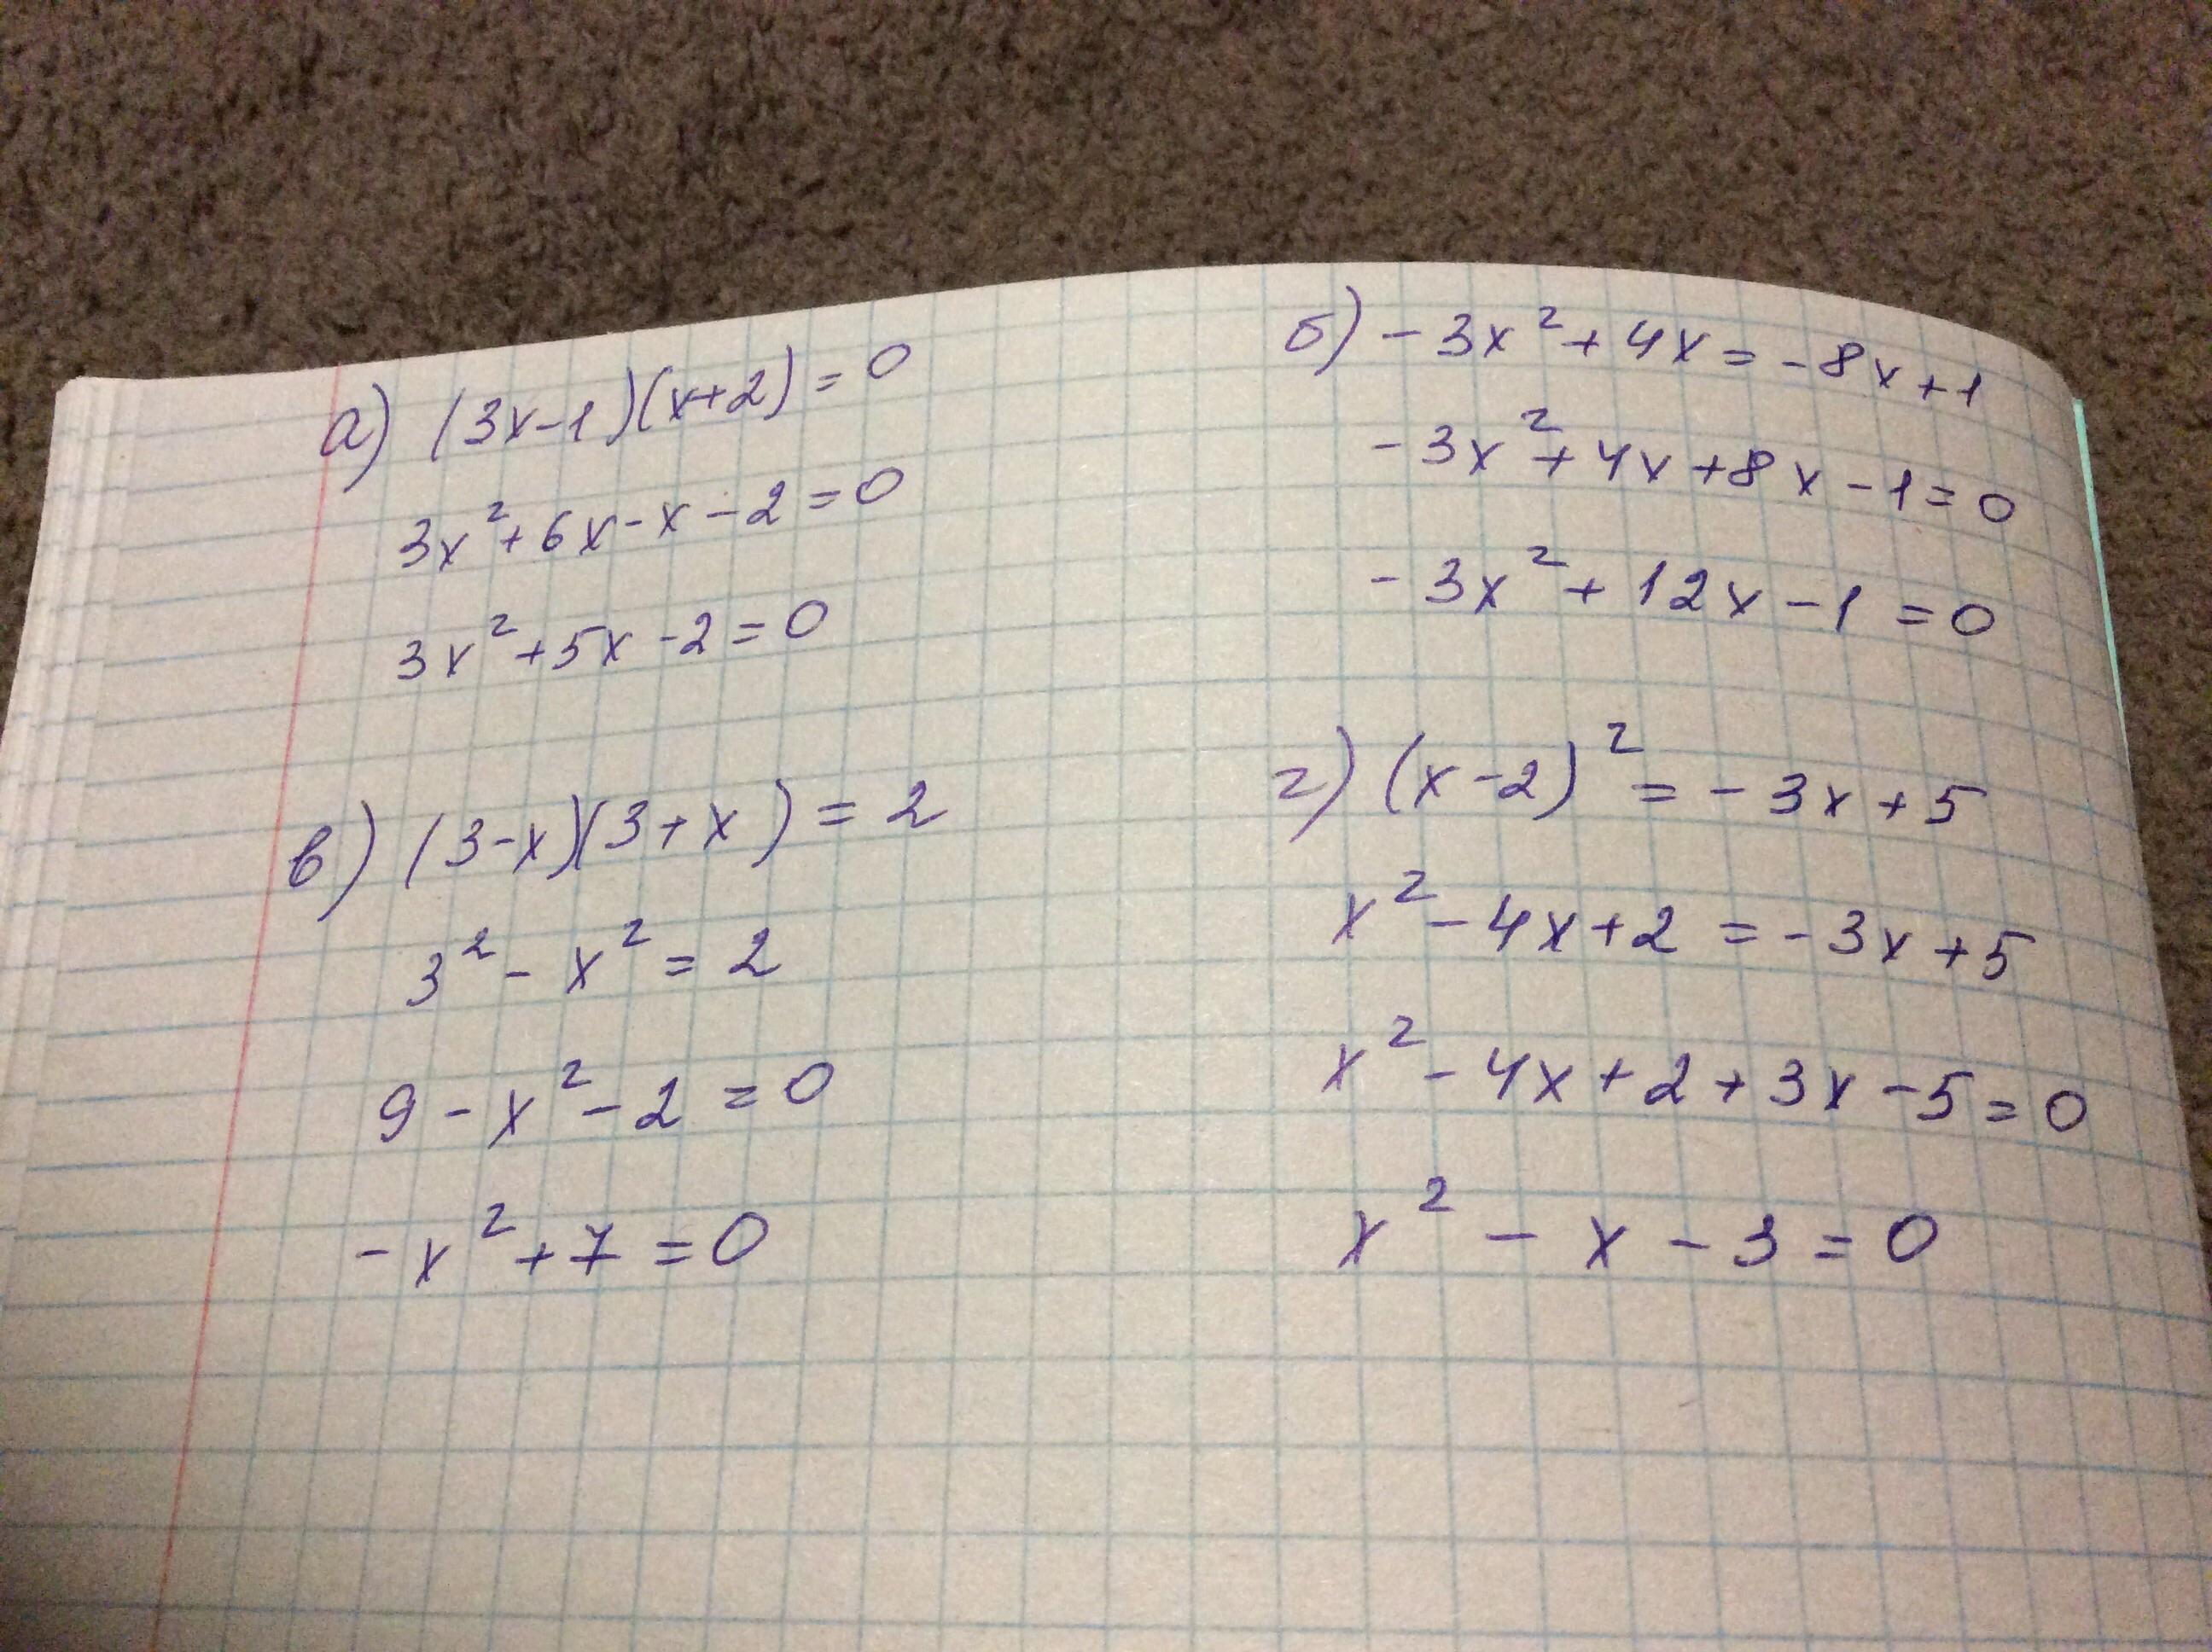 а) (3x-1)(x+2)=0
3x²+6x-x-2=0
3x²+5x-2=0
б) -3x²+4x=-8x+1
-3x²+4x+8x-1=0
-3x²+12x-1=0
в) (3-x)(3+x)=2
3²-x²=2
9-x²-2=0
-x²+7=0
г) (x-2)²=-3x+5
x²-4x+2=-3x+5
x²-4x+2+3x-5=0
x²-x-3=0